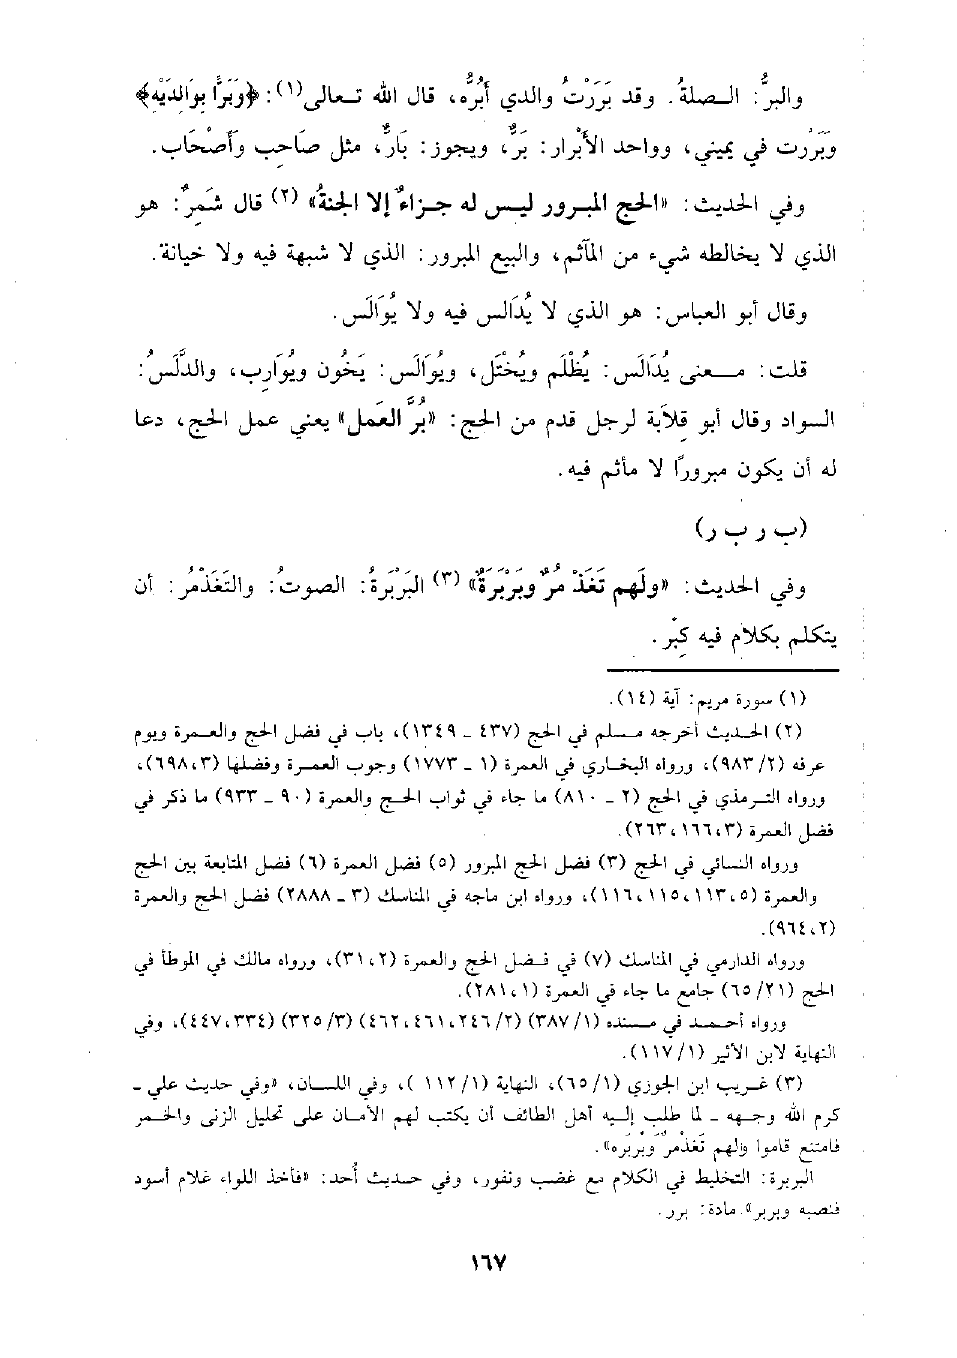 والبرُّ: الصلةُ. وقد بَرَرْتُ والدي أَبُرُّه، قال الله تعالى(١): ﴿وَبَرًّا بِوَالِدَيْهِ﴾
وبَرَرت في يميني، وواحد الأبْرار: بَرٌّ، ويجوز: بَارٌّ، مثل صَاحِب وأَصْحَاب.
وفي الحديث: «الحج المبرور ليس له جزاءٌ إلا الجنةُ» (٢) قال شَمِرٌ: هو
الذي لا يخالطه شيء من المآثم، والبيع المبرور: الذي لا شبهة فيه ولا خيانة.
وقال أبو العباس: هو الذي لا يُدَالس فيه ولا يُوَالَس.
قلت: معنى يُدَالَس: يُظْلَم ويُخْتَل، ويُوَالَس: يَخُون ويُوَارِب، والدَّلَسُ:
السواد وقال أبو قِلاَبة لرجل قدم من الحج: «بُرَّ العَمل» يعني عمل الحج، دعا
له أن يكون مبرورًا لا مأثم فيه.
(ب ر ب ر)
وفي الحديث: «ولَهم تَغَذْ مُرٌ وبَرْبَرَةٌ» (٣) البَرْبَرةُ: الصوتُ: والتَغَذْمُر: أن
يتكلم بكلام فيه كِبْر.
(١) سورة مريم: آية (١٤).
(٢) الحديث أخرجه مسلم في الحج (٤٣٧ ـ ١٣٤٩)، باب في فضل الحج والعمرة ويوم
عرفه (٢/ ٩٨٣)، ورواه البخاري في العمرة (١ ـ ١٧٧٣) وجوب العمرة وفضلها (٣، ٦٩٨)،
ورواه الترمذي في الحج (٢ ـ ٨١٠) ما جاء في ثواب الحج والعمرة (٩٠ ـ ٩٣٣) ما ذكر في
فضل العمرة (٣، ١٦٦، ٢٦٣).
ورواه النسائي في الحج (٣) فضل الحج المبرور (٥) فضل العمرة (٦) فضل المتابعة بين الحج
والعمرة (٥، ١١٣، ١١٥، ١١٦)، ورواه ابن ماجه في المناسك (٣ ـ ٢٨٨٨) فضل الحج والعمرة
(٢، ٩٦٤).
ورواه الدارمي في المناسك (٧) في فضل الحج والعمرة (٢، ٣١)، ورواه مالك في الموطأ في
الحج (٢١/ ٦٥) جامع ما جاء في العمرة (١، ٢٨١).
ورواه أحمد في مسنده (١/ ٣٨٧) (٢/ ٢٤٦، ٤٦١، ٤٦٢) (٣/ ٣٢٥) (٣٣٤، ٤٤٧)، وفي
النهاية لابن الأثير (١/ ١١٧).
(٣) غريب ابن الجوزي (١/ ٦٥)، النهاية (١/ ١١٢ )، وفي اللسان، «وفي حديث علي ـ
كرم الله وجهه ـ لما طلب إليه أهل الطائف أن يكتب لهم الأمان على تحليل الزنى والخمر
فامتنع قاموا ولهم تَغَذْمرٌ وَبْربَره».
البربرة: التخليط في الكلام مع غضب ونفور، وفي حديث أُحد: «فأخذ اللواء غلام أسود
فنصبه وبربر». مادة: برر.
١٦٧